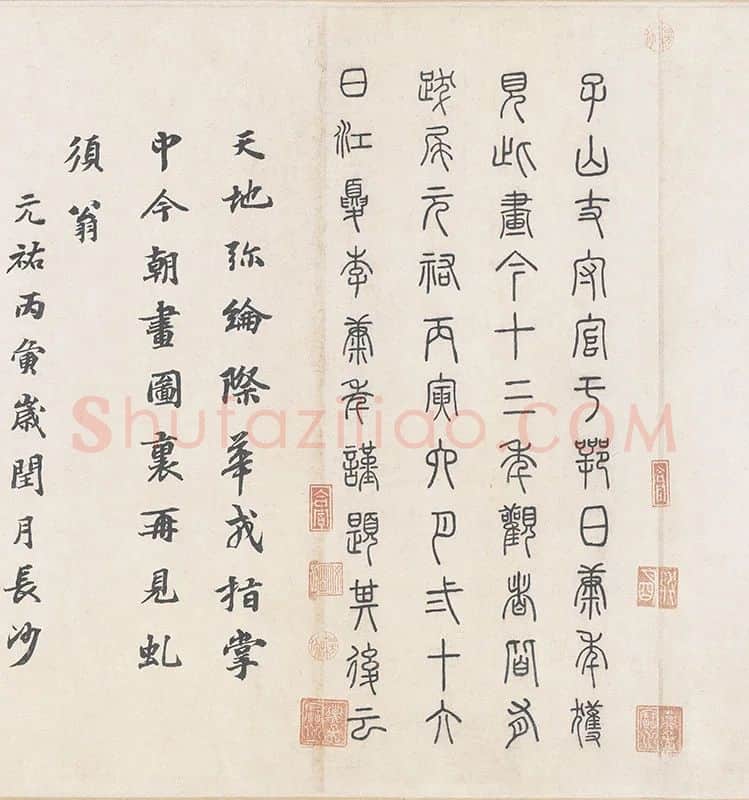 子山守官于鄂日康年獲
見此畫今十二年觀者皆有
跋尾元祐丙寅六月弍十六
日江夏李康年謹題其後云
天地弥綸際華戎指掌
中今朝畫圖裏再見虬
須翁
元祐丙寅歲閏月長沙
Shufazitiao.COM